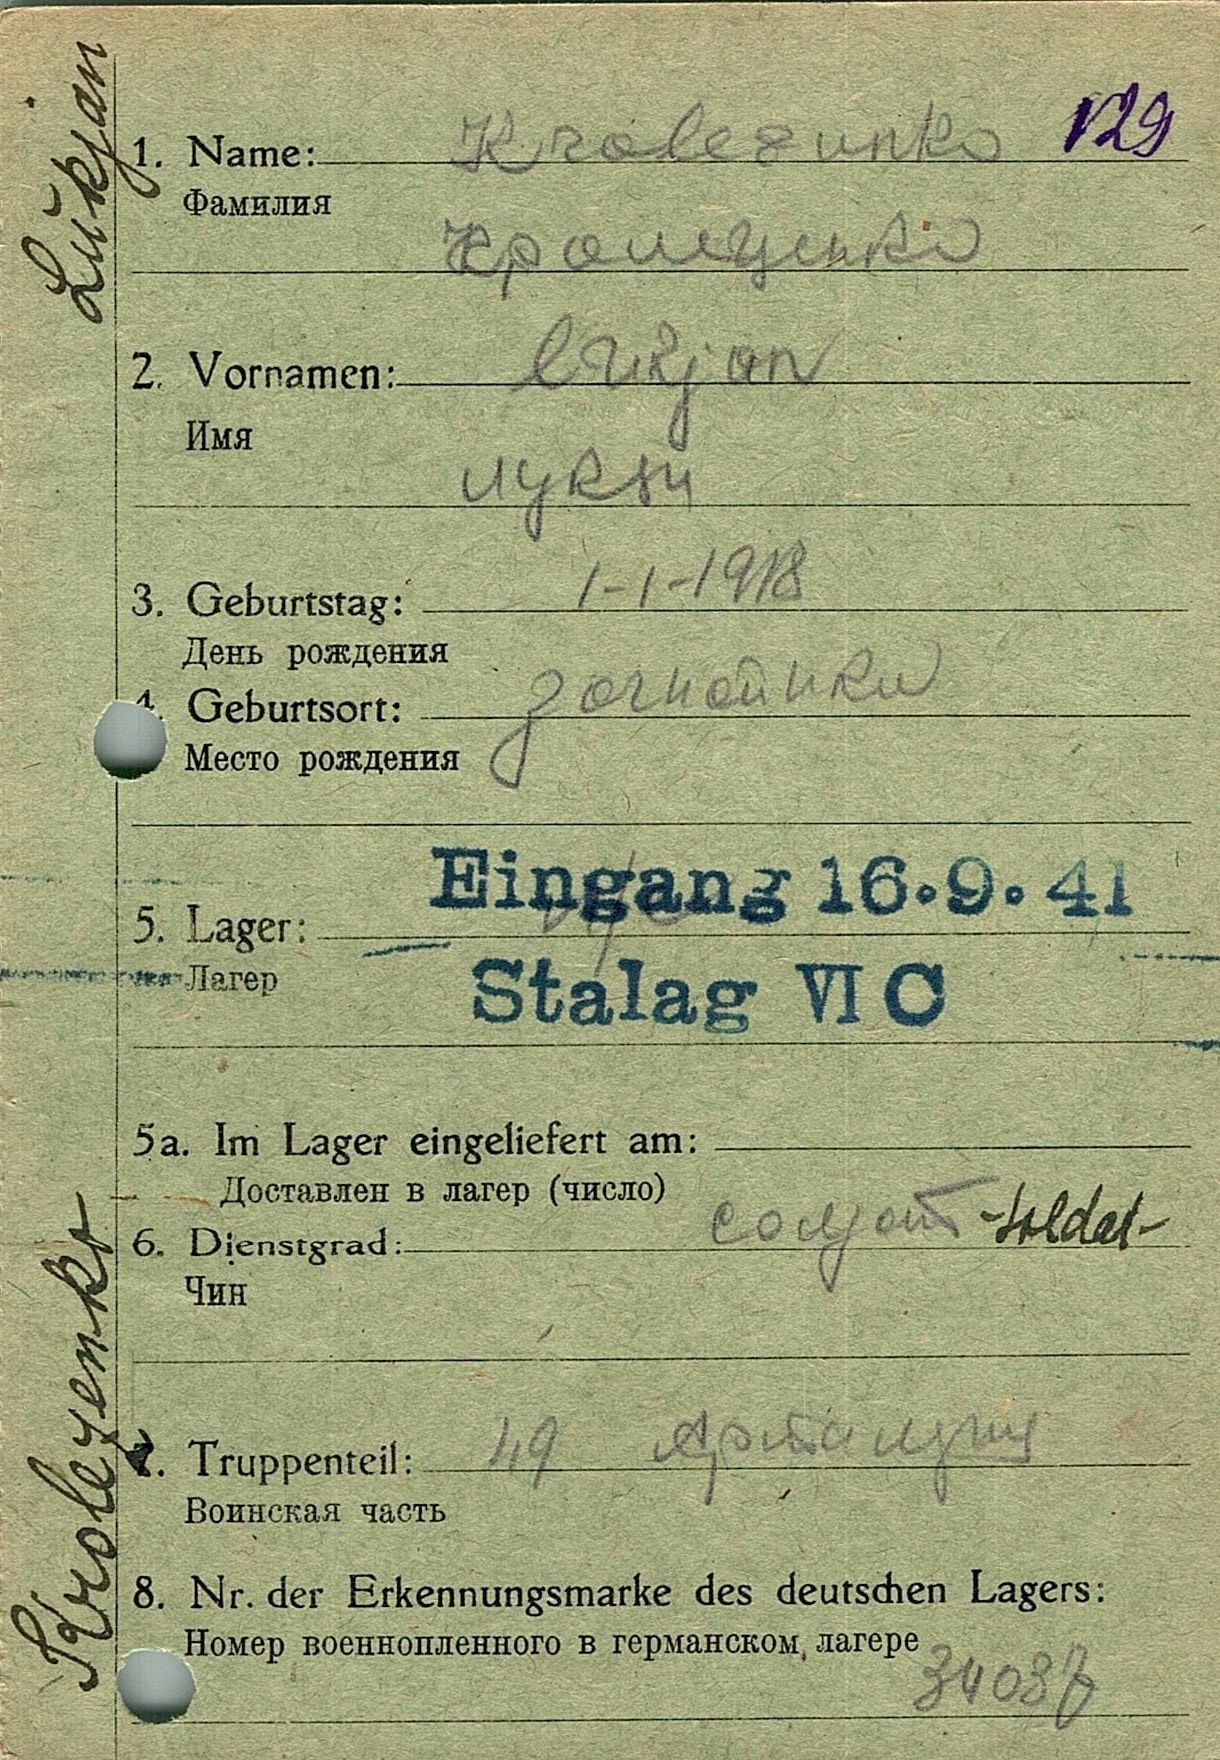 Lukjan
Krolezenko
1. Name: Krolezunko 129
Фамилия
2. Vornamen: Lukjan
Имя
3. Geburtstag: 1-1-1918
День рождения
4. Geburtsort:
Место рождения
Eingang 16.9.41
5. Lager:
Лагер
Stalag VI C
5a. Im Lager eingeliefert am:
Доставлен в лагер (число)
6. Dienstgrad: солдат -Soldat-
Чин
7. Truppenteil: 49
Воинская часть
8. Nr. der Erkennungsmarke des deutschen Lagers:
Номер военнопленного в германском лагере
34037